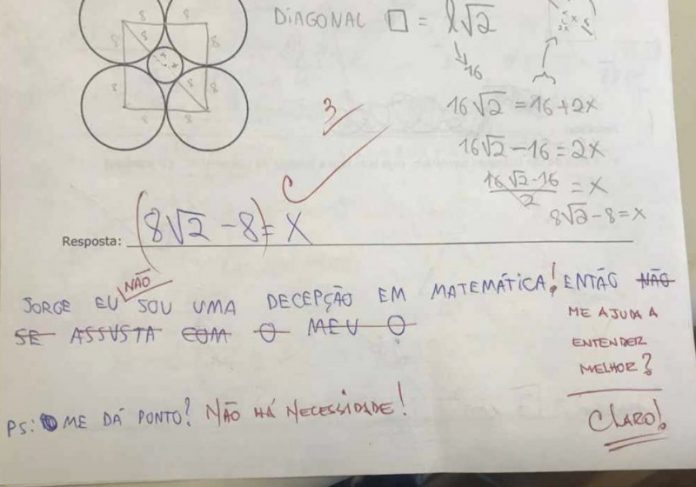 8 8
8 8
DIAGONAL □ = l√2
16
8 8
8 8
8 8
3
16√2 = 16 + 2x
16√2 - 16 = 2x
16√2 - 16 / 2 = x
8√2 - 8 = x
C
Resposta: (8√2 - 8) = x
NÃO
JORGE EU SOU UMA DECEPÇÃO EM MATEMÁTICA! ENTÃO NÃO
SE ASSUSTA COM O MEU O
ME AJUDA A
ENTENDER
MELHOR?
PS: ME DÁ PONTO? NÃO HÁ NECESSIDADE!
CLARO!